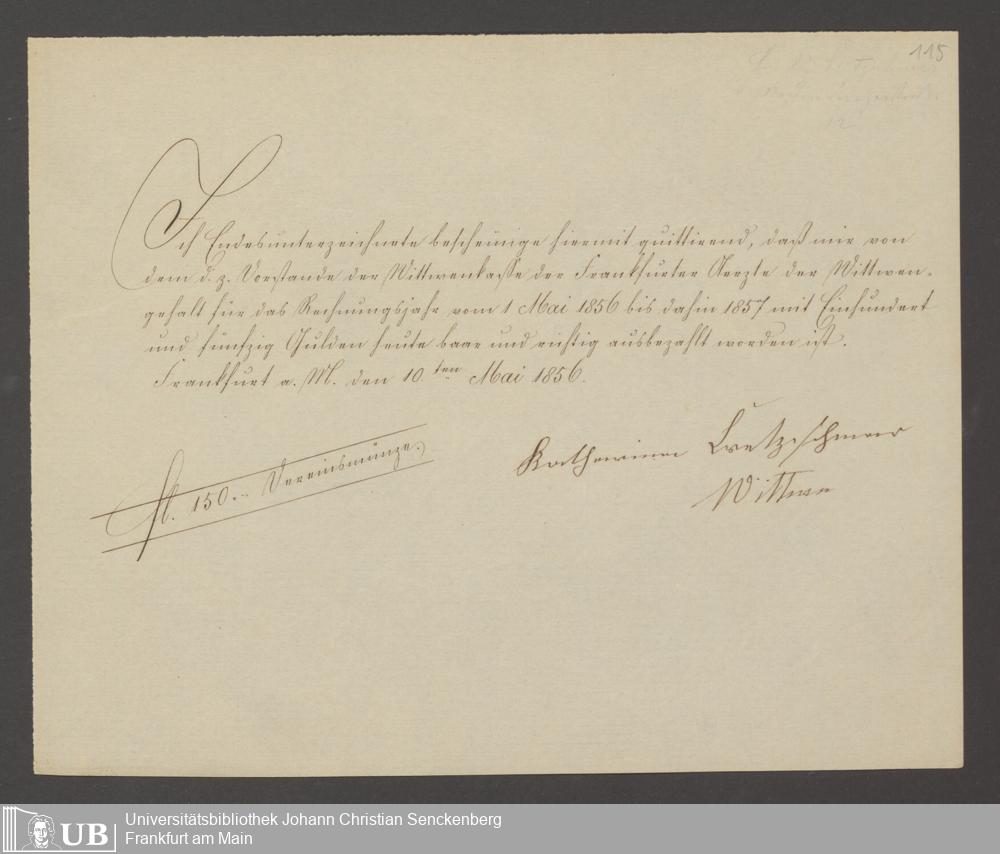 115
Ich Endesunterzeichnete bescheinige hiermit quittirend, daß mir von
dem d. z. Vorstande der Wittwenkasse der Frankfurter Aerzte der Wittwen-
gehalt für das Rechnungsjahr vom 1 Mai 1856 bis dahin 1857 mit Einhundert
und fünfzig Gulden heute baar und richtig ausbezahlt worden ist.
Frankfurt a. M. den 10ten Mai 1856.
fl. 150.-- Vereinsmünze.
Katharina Cretzschmar
Wittwe
UB
Universitätsbibliothek Johann Christian Senckenberg
Frankfurt am Main